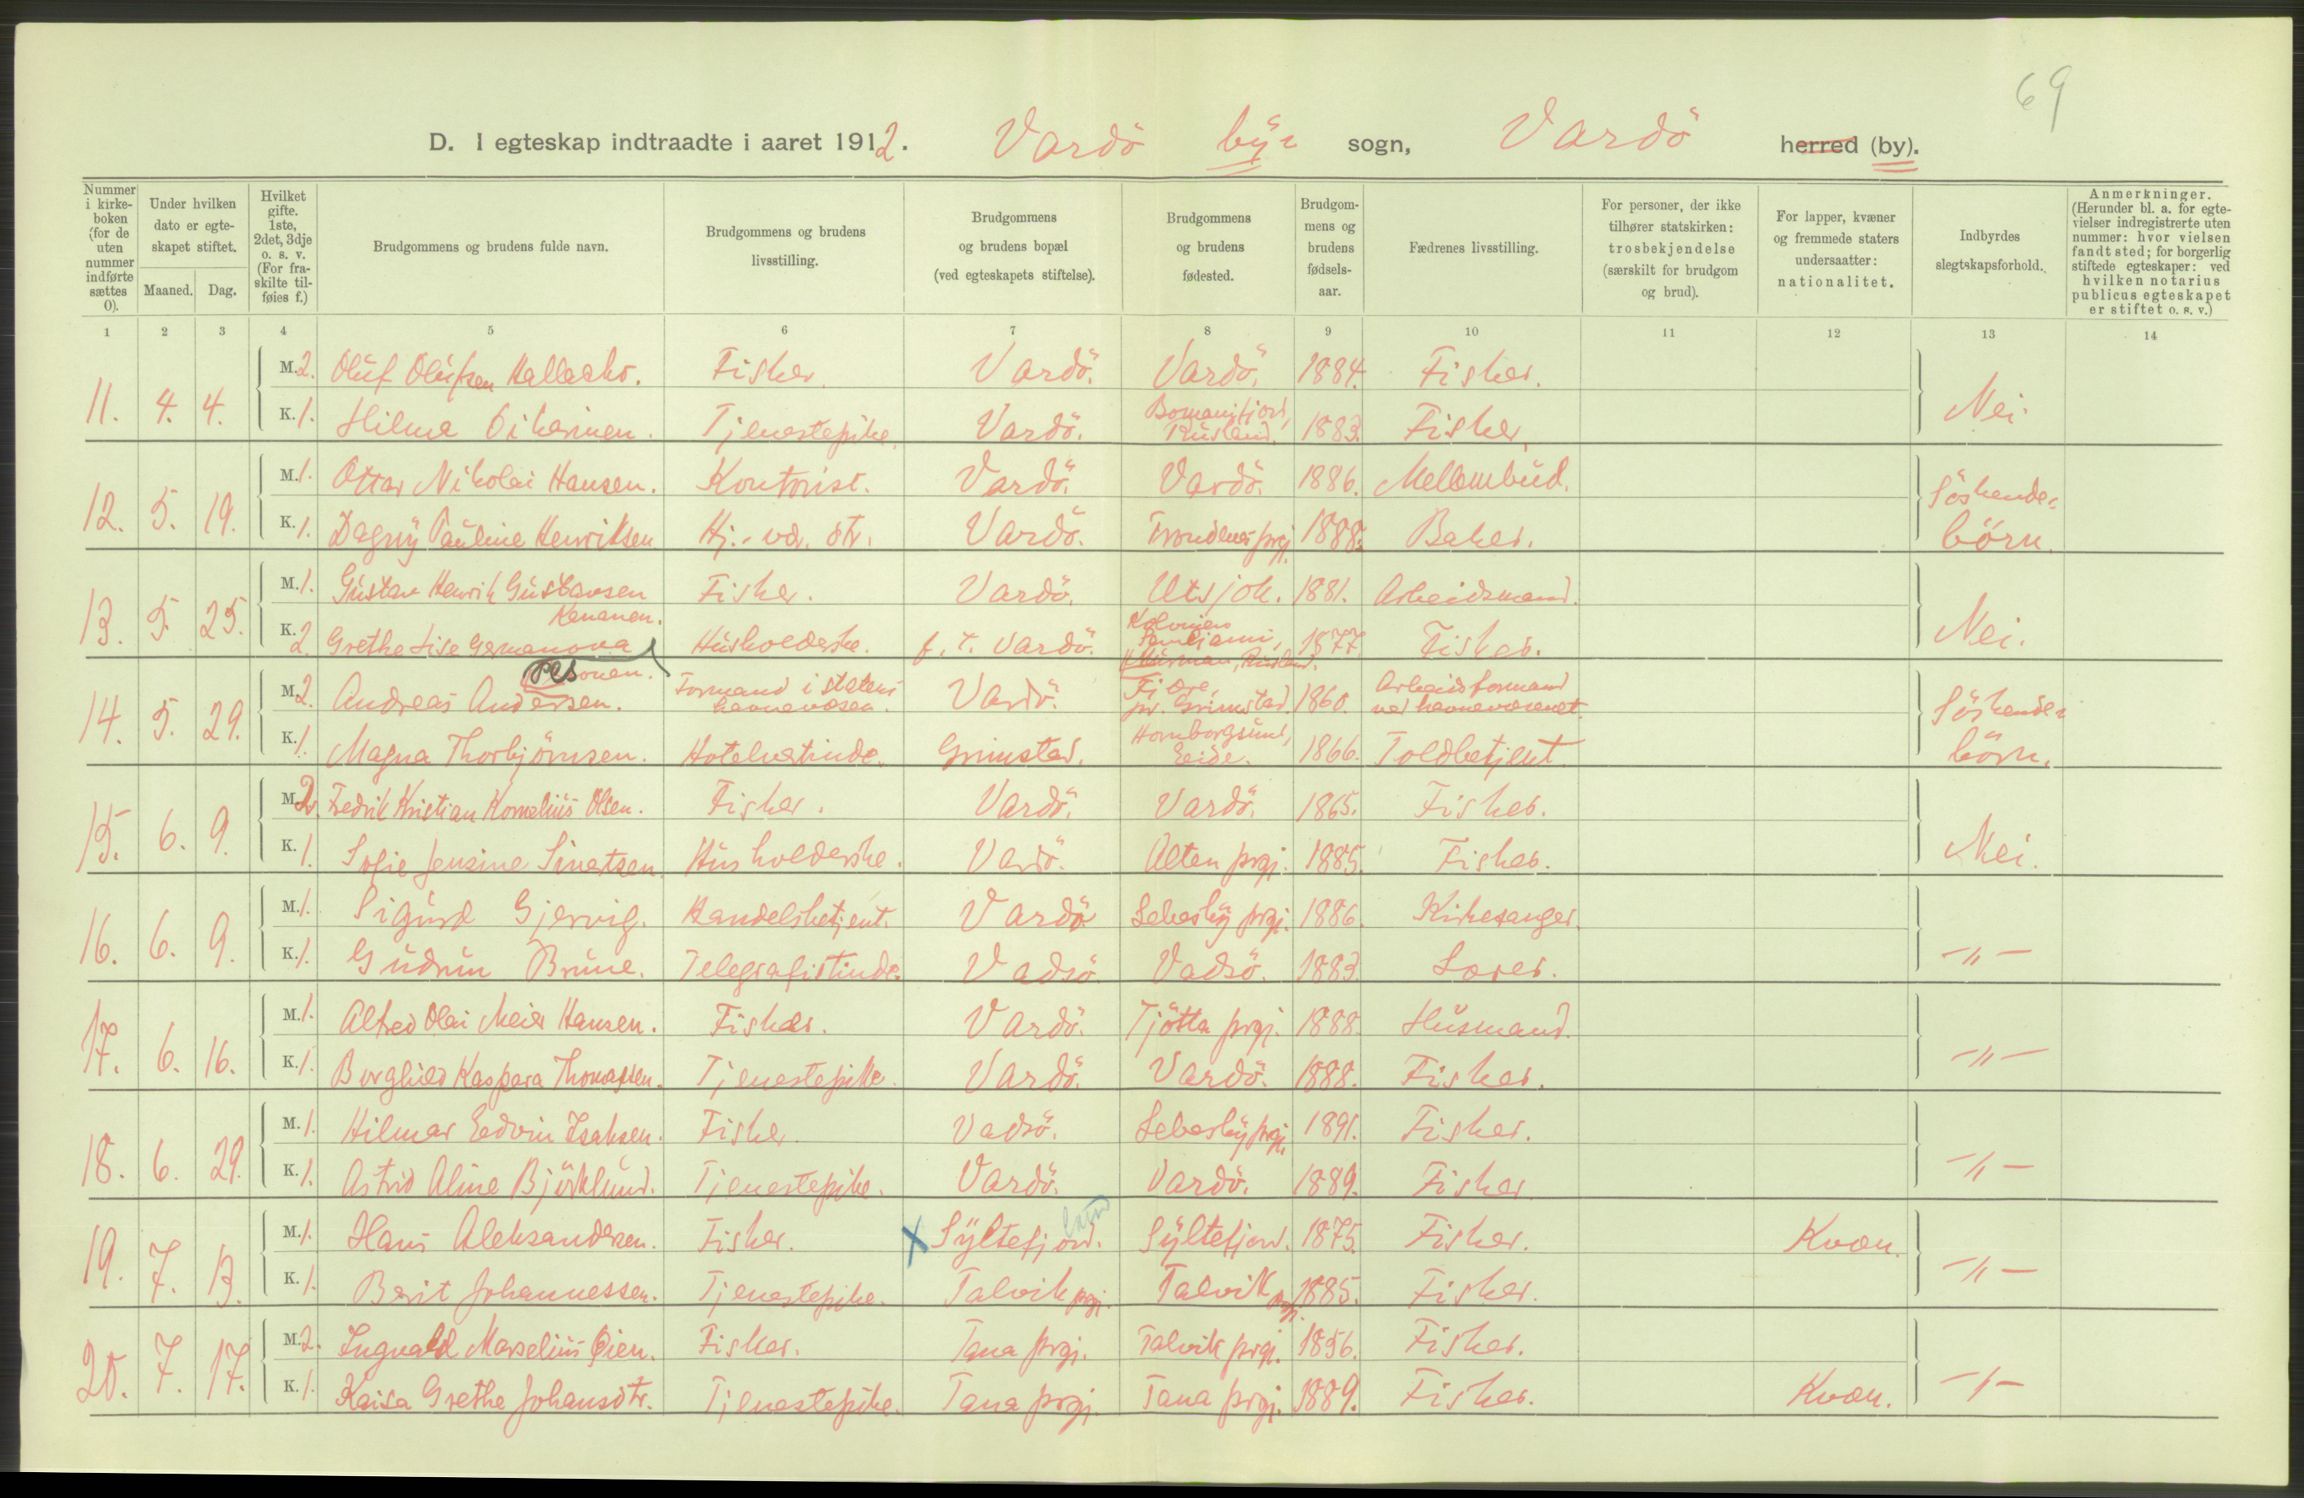 69
D. I egteskap indtraadte i aaret 1912. Vardö by's sogn, Vardö herred (by).
Nummer i kirkeboken (for de uten nummer indførte sættes 0).
Under hvilken dato er egteskapet stiftet.
Maaned. Dag.
Hvilket gifte. 1ste, 2det, 3dje o. s. v. (For fraskilte tilføies f.)
Brudgommens og brudens fulde navn.
Brudgommens og brudens livsstilling.
Brudgommens og brudens bopæl (ved egteskapets stiftelse).
Brudgommens og brudens fødested.
Brudgommens og brudens fødselsaar.
Fædrenes livsstilling.
For personer, der ikke tilhører statskirken: trosbekjendelse (særskilt for brudgom og brud).
For lapper, kvæner og fremmede staters undersaatter: nationalitet.
Indbyrdes slegtskapsforhold.
Anmerkninger. (Herunder bl. a. for egtevielser indregistrerte uten nummer: hvor vielsen fandt sted; for borgerlig stiftede egteskaper: ved hvilken notarius publicus egteskapet er stiftet o. s. v.)
1 2 3 4 5 6 7 8 9 10 11 12 13 14
11. 4. 4. M. 2. Oluf Olufsen Fisker. Vardö. Vardö. 1884. Fisker. Nei.
K. 1. Hilma Tjenestepike. Vardö. Bomanifjord, Rusland. 1883. Fisker.
12. 5. 19. M. 1. Ottar Nikolai Hansen. Kontorist. Vardö. Vardö. 1886. Mellembud. Söskendebörn.
K. 1. Dagny Pauline Henriksen Hj.-vær. dtr. Vardö. Trondenes prgj. 1888. Baker.
13. 5. 25. M. 1. Gustav Henrik Gustavsen Kananen. Fisker. Vardö. Utsjok. 1881. Arbeidsmand. Nei.
K. 2. Grethe Lise Germanova Pesonen. Husholderske. f. t. Vardö. Kolonien Murman, Rusland. 1877. Fisker.
14. 5. 29. M. 2. Andreas Andersen. Formand i statens havnevæsen. Vardö. Fjære, pr. Grimstad. 1860. Arbeidsformand ved havnevæsenet. Söskendebörn.
K. 1. Magna Thorbjörnsen. Hotelvertinde. Grimstad. Homborgsund, Eeide. 1866. Toldbetjent.
15. 6. 9. M. 2. Fedrik Kristian Kornelius Olsen. Fisker. Vardö. Vardö. 1865. Fisker. Nei.
K. 1. Sofie Jensine Sivertsen. Husholderske. Vardö. Alten prgj. 1885. Fisker.
16. 6. 9. M. 1. Sigurd Gjervig. Handelsbetjent. Vardö Lebesby prgj. 1886. Kirkesanger. -"-
K. 1. Gudrun Brune. Telegrafistinde. Vadsö Vadsö. 1883. Lærer.
17. 6. 16. M. 1. Alfred Olai Meier Hansen. Fisker. Vardö. Tjötta prgj. 1888. Husmand. -"-
K. 1. Borghild Kaspara Thomassen. Tjenestepike. Vardö. Vardö. 1888. Fisker.
18. 6. 29. M. 1. Hilmar Edvin Isaksen. Fisker. Vadsö. Lebesby prgj. 1891. Fisker. -"-
K. 1. Astrid Aline Björklund. Tjenestepike. Vardö. Vardö. 1889. Fisker
19. 7. 13. M. 1. Hans Aleksandersen. Fisker. X Syltefjord. Syltefjord. 1875. Fisker. Kvæn. -"-
K. 1. Berit Johannessen. Tjenestepike. Talvik prgj. Talvik prgj. 1885. Fisker.
20. 7. 17. M. 2. Ingvald Marselius Öien. Fisker. Tana prgj. Talvik prgj. 1856. Fisker. -"-
K. 1. Kaisa Grethe Johansdtr. Tjenestepike. Tana prgj. Tana prgj. 1889. Fisker. Kvæn.